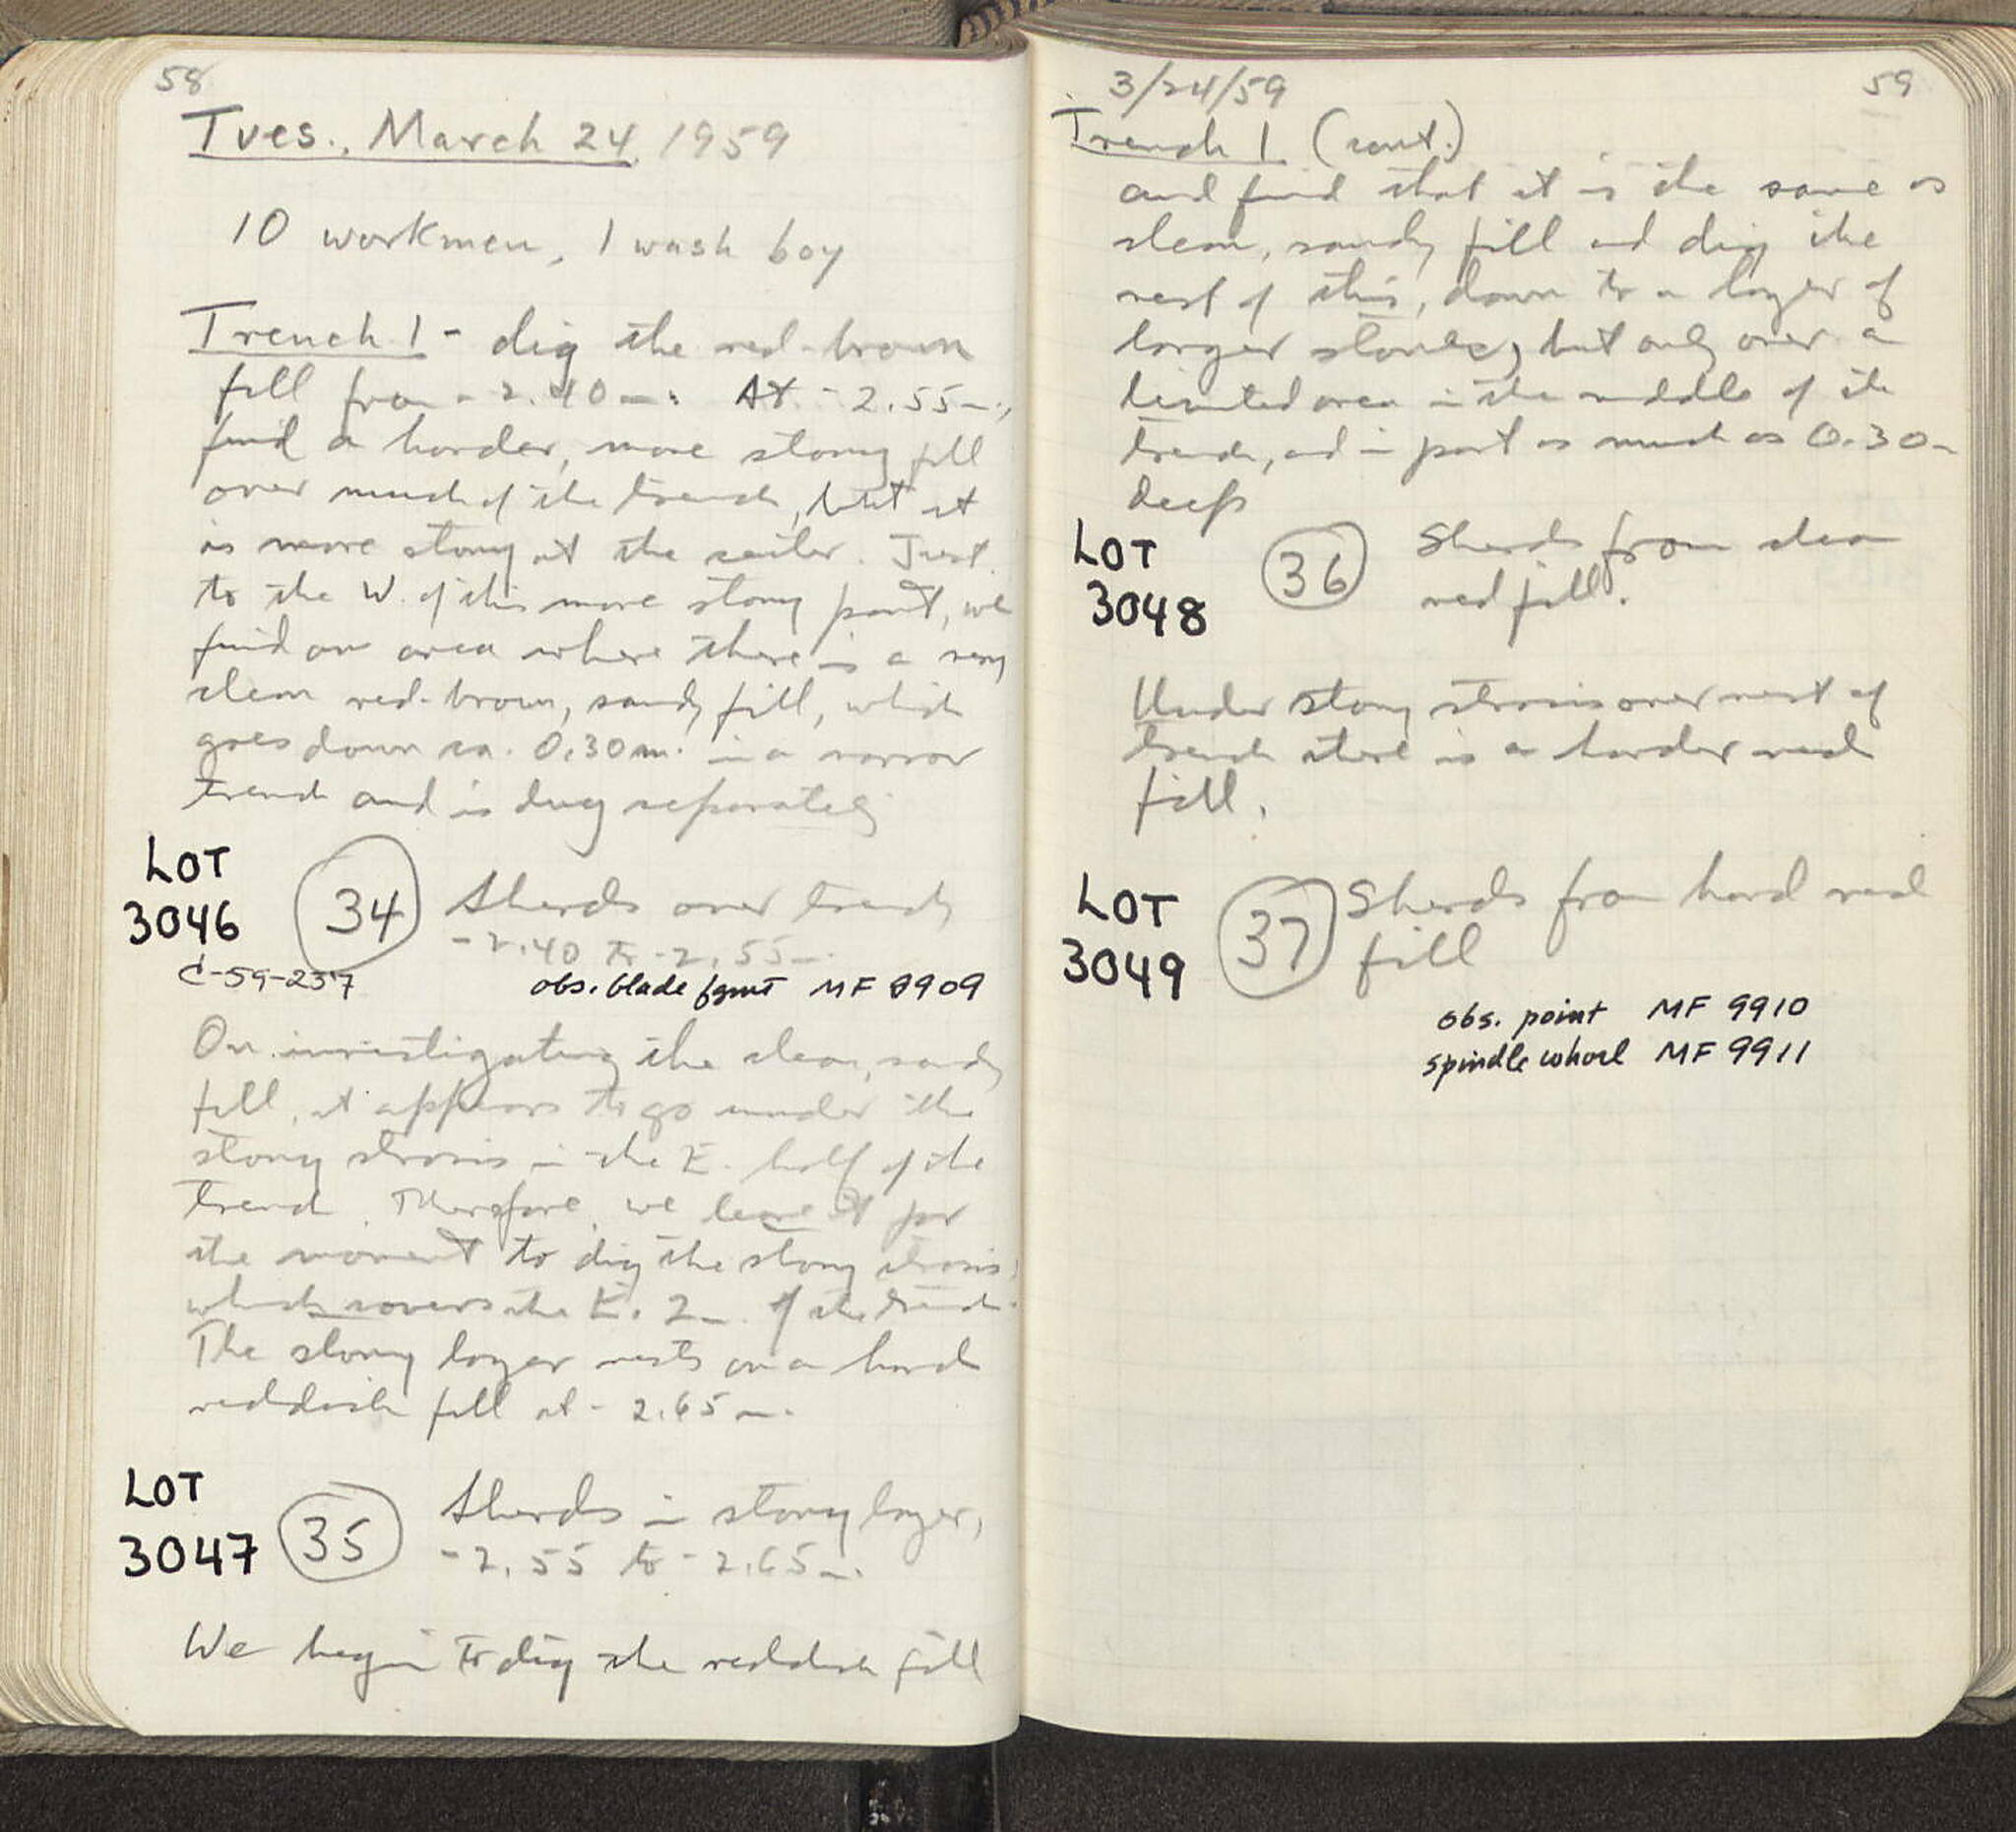 58
Tues., March 24, 1959
10 workmen, 1 wash boy
Trench 1 - dig the red-brown
fill from -2.40m. At -2.55m.,
find a harder, more stony fill
over much of the trench, but it
is more stony at the center. Just
to the W. of this more stony part, we
find an area where there is a very
clean red-brown, sandy fill, which
goes down ca. 0.30m. in a narrow
trench and is dug separately
LOT
3046
34
Sherds over trench
-2.40 to -2.55m.
C-59-257
obs. blade fgmt MF 9909
On investigating the clean, sandy
fill, it appears to go under the
stony strosis in the E. half of the
trench. Therefore, we leave it for
the moment to dig the stony strosis,
which covers the E. 2m. of the trench.
The stony layer rests on a hard
reddish fill at -2.65m.
LOT
3047
35
Sherds in stony layer,
-2.55 to -2.65m.
We begin to dig the reddish fill
3/24/59
59
Trench 1 (cont.)
and find that it is the same as
clean, sandy fill and dig the
rest of this, down to a layer of
larger stones, but only over a
limited area in the middle of the
trench, and in part as much as 0.30m
deep
LOT
3048
36
Sherds from clean
red fill.
Under stony strosis over rest of
trench there is a harder red
fill.
LOT
3049
37
Sherds from hard red
fill
obs. point MF 9910
spindle whorl MF 9911